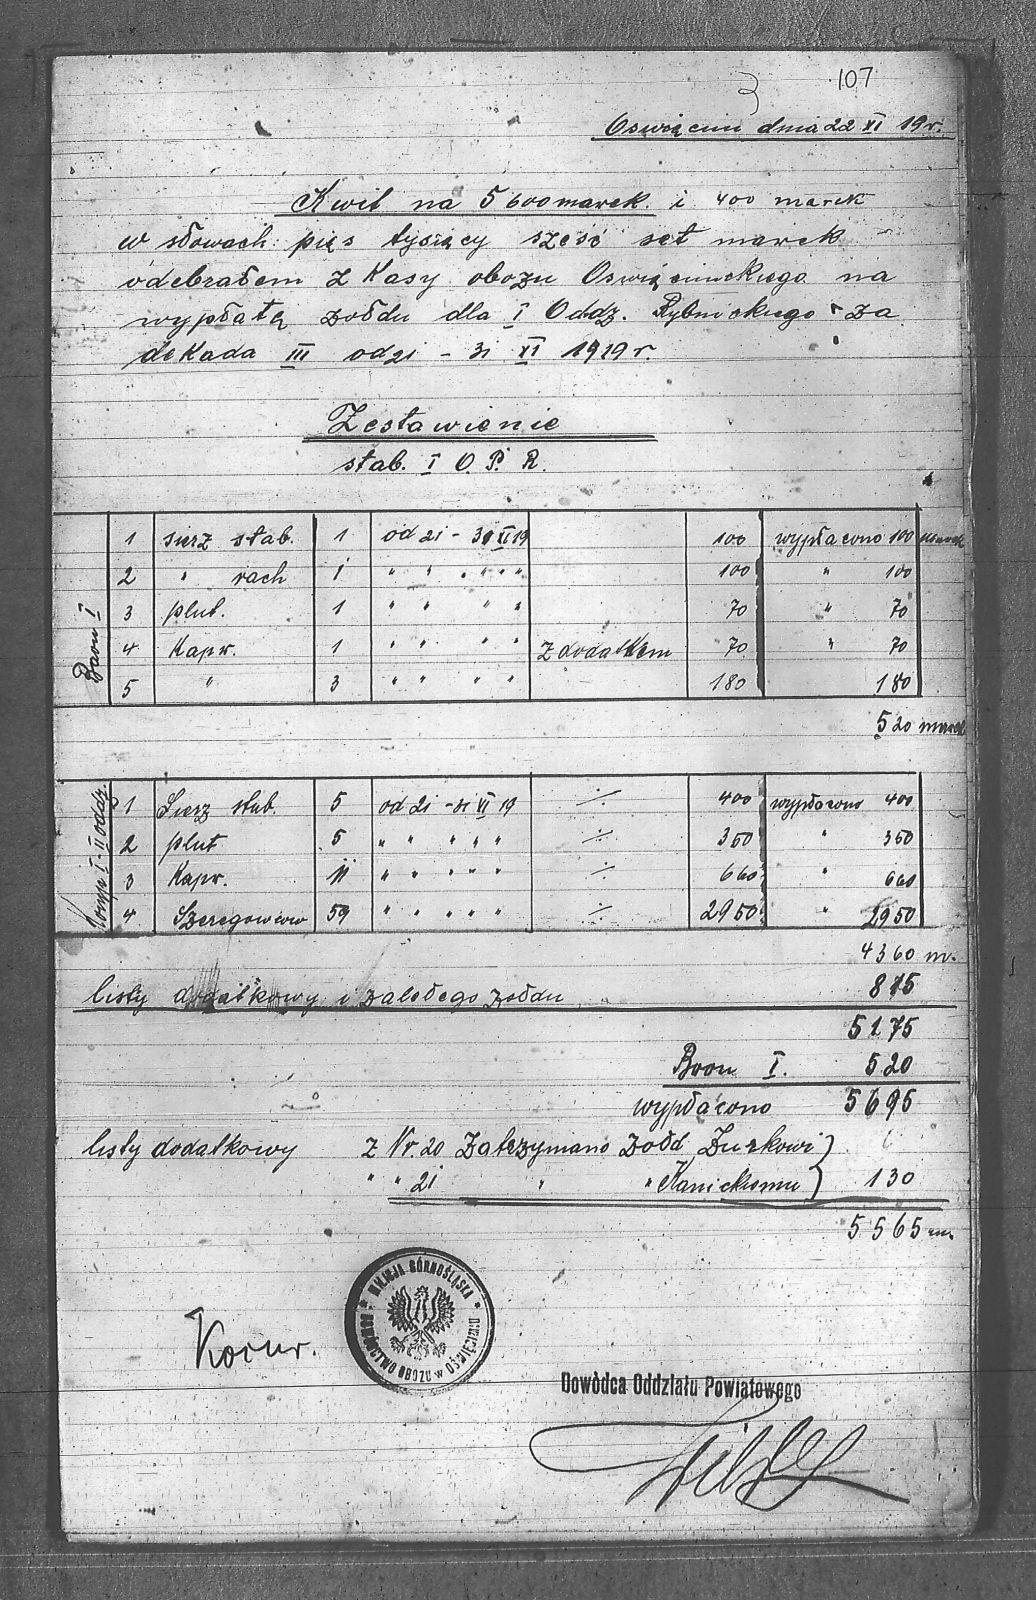 107
3
Oswięcim dnia 22 XI 19 r.
Kwit na 5600 marek. i 400 marek
w słowach pięs tysięcy sześć set marek
odebrałem z Kasy obozu Oswięcimckiego na
wypłatę żołdu dla I Oddz. Rybnickiego za
dekada III od 21 - 31 XI 1919 r.
Zestawienie
stab. I O. P. R.
Baon I
1 sierz stab. 1 od 21 - 31 XI 19 100 wypłacono 100 marek
2 " rach 1 " " " " " 100 " 100
3 plut. 1 " " " " 70 " 70
4 Kapr. 1 " " " " z dodatkem 70 " 70
5 " 3 " " " " 180 180
520 marek
Komp I - II oddz
1 Sierz stab. 5 od 21 - 31 XI 19 ./. 400 wypłacono 400
2 plut 5 " " " " " ./. 350 " 350
3 Kapr. 11 " " " " " ./. 660 " 660
4 Szeregowców 59 " " " " " ./. 2950 " 2950
4360 m.
listy dodatkowy i zaległego żołdu 815
5175
Baon I. 520
wypłacono 5695
listy dodatkowy z Nr. 20 Zatrzymano żołd Żurkowi }
" " 21 " " Kanickiemu } 130
5565 m.
MILICJA GÓRNOŚLĄSKA
DOWÓDCTWO OBOZU w OŚWIĘCIMIU
Kocur.
Dowódca Oddziału Powiatowego